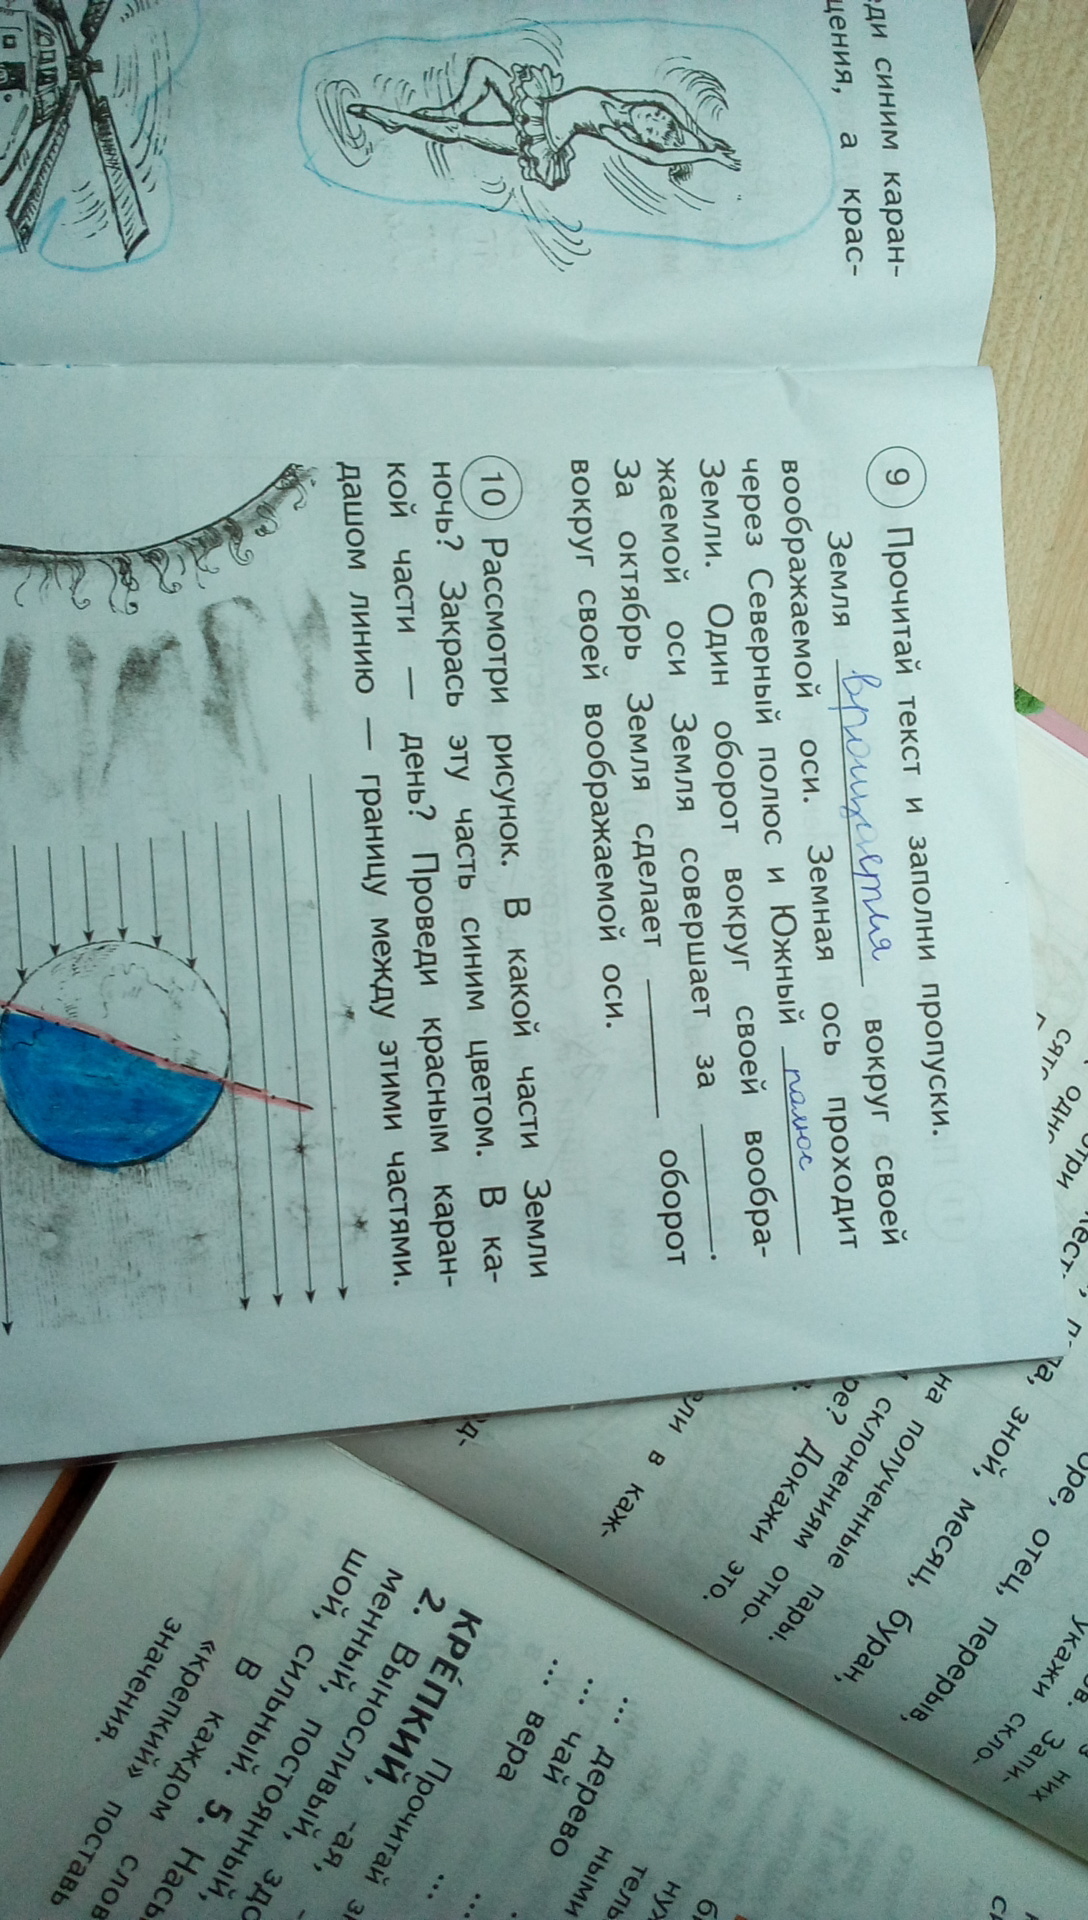 еди синим каран-
щения, а крас-
9 Прочитай текст и заполни пропуски.
Земля вращается вокруг своей
воображаемой оси. Земная ось проходит
через Северный полюс и Южный полюс
Земли. Один оборот вокруг своей вообра-
жаемой оси Земля совершает за ______.
За октябрь Земля сделает ______ оборот
вокруг своей воображаемой оси.
10 Рассмотри рисунок. В какой части Земли
ночь? Закрась эту часть синим цветом. В ка-
кой части — день? Проведи красным каран-
дашом линию — границу между этими частями.
отец, перерыв,
зной, месяц, буран,
на полученные пары.
склонениям отно-
Докажи это.
ели в каж-
укажи скло-
Запи-
них
... дерево
... чай
... вера
КРЕ́ПКИЙ, -ая,
2. Выносливый,
менный, постоянный,
шой, сильный. 5.
В каждом
«крепкий» поставь
значения.
Прочитай